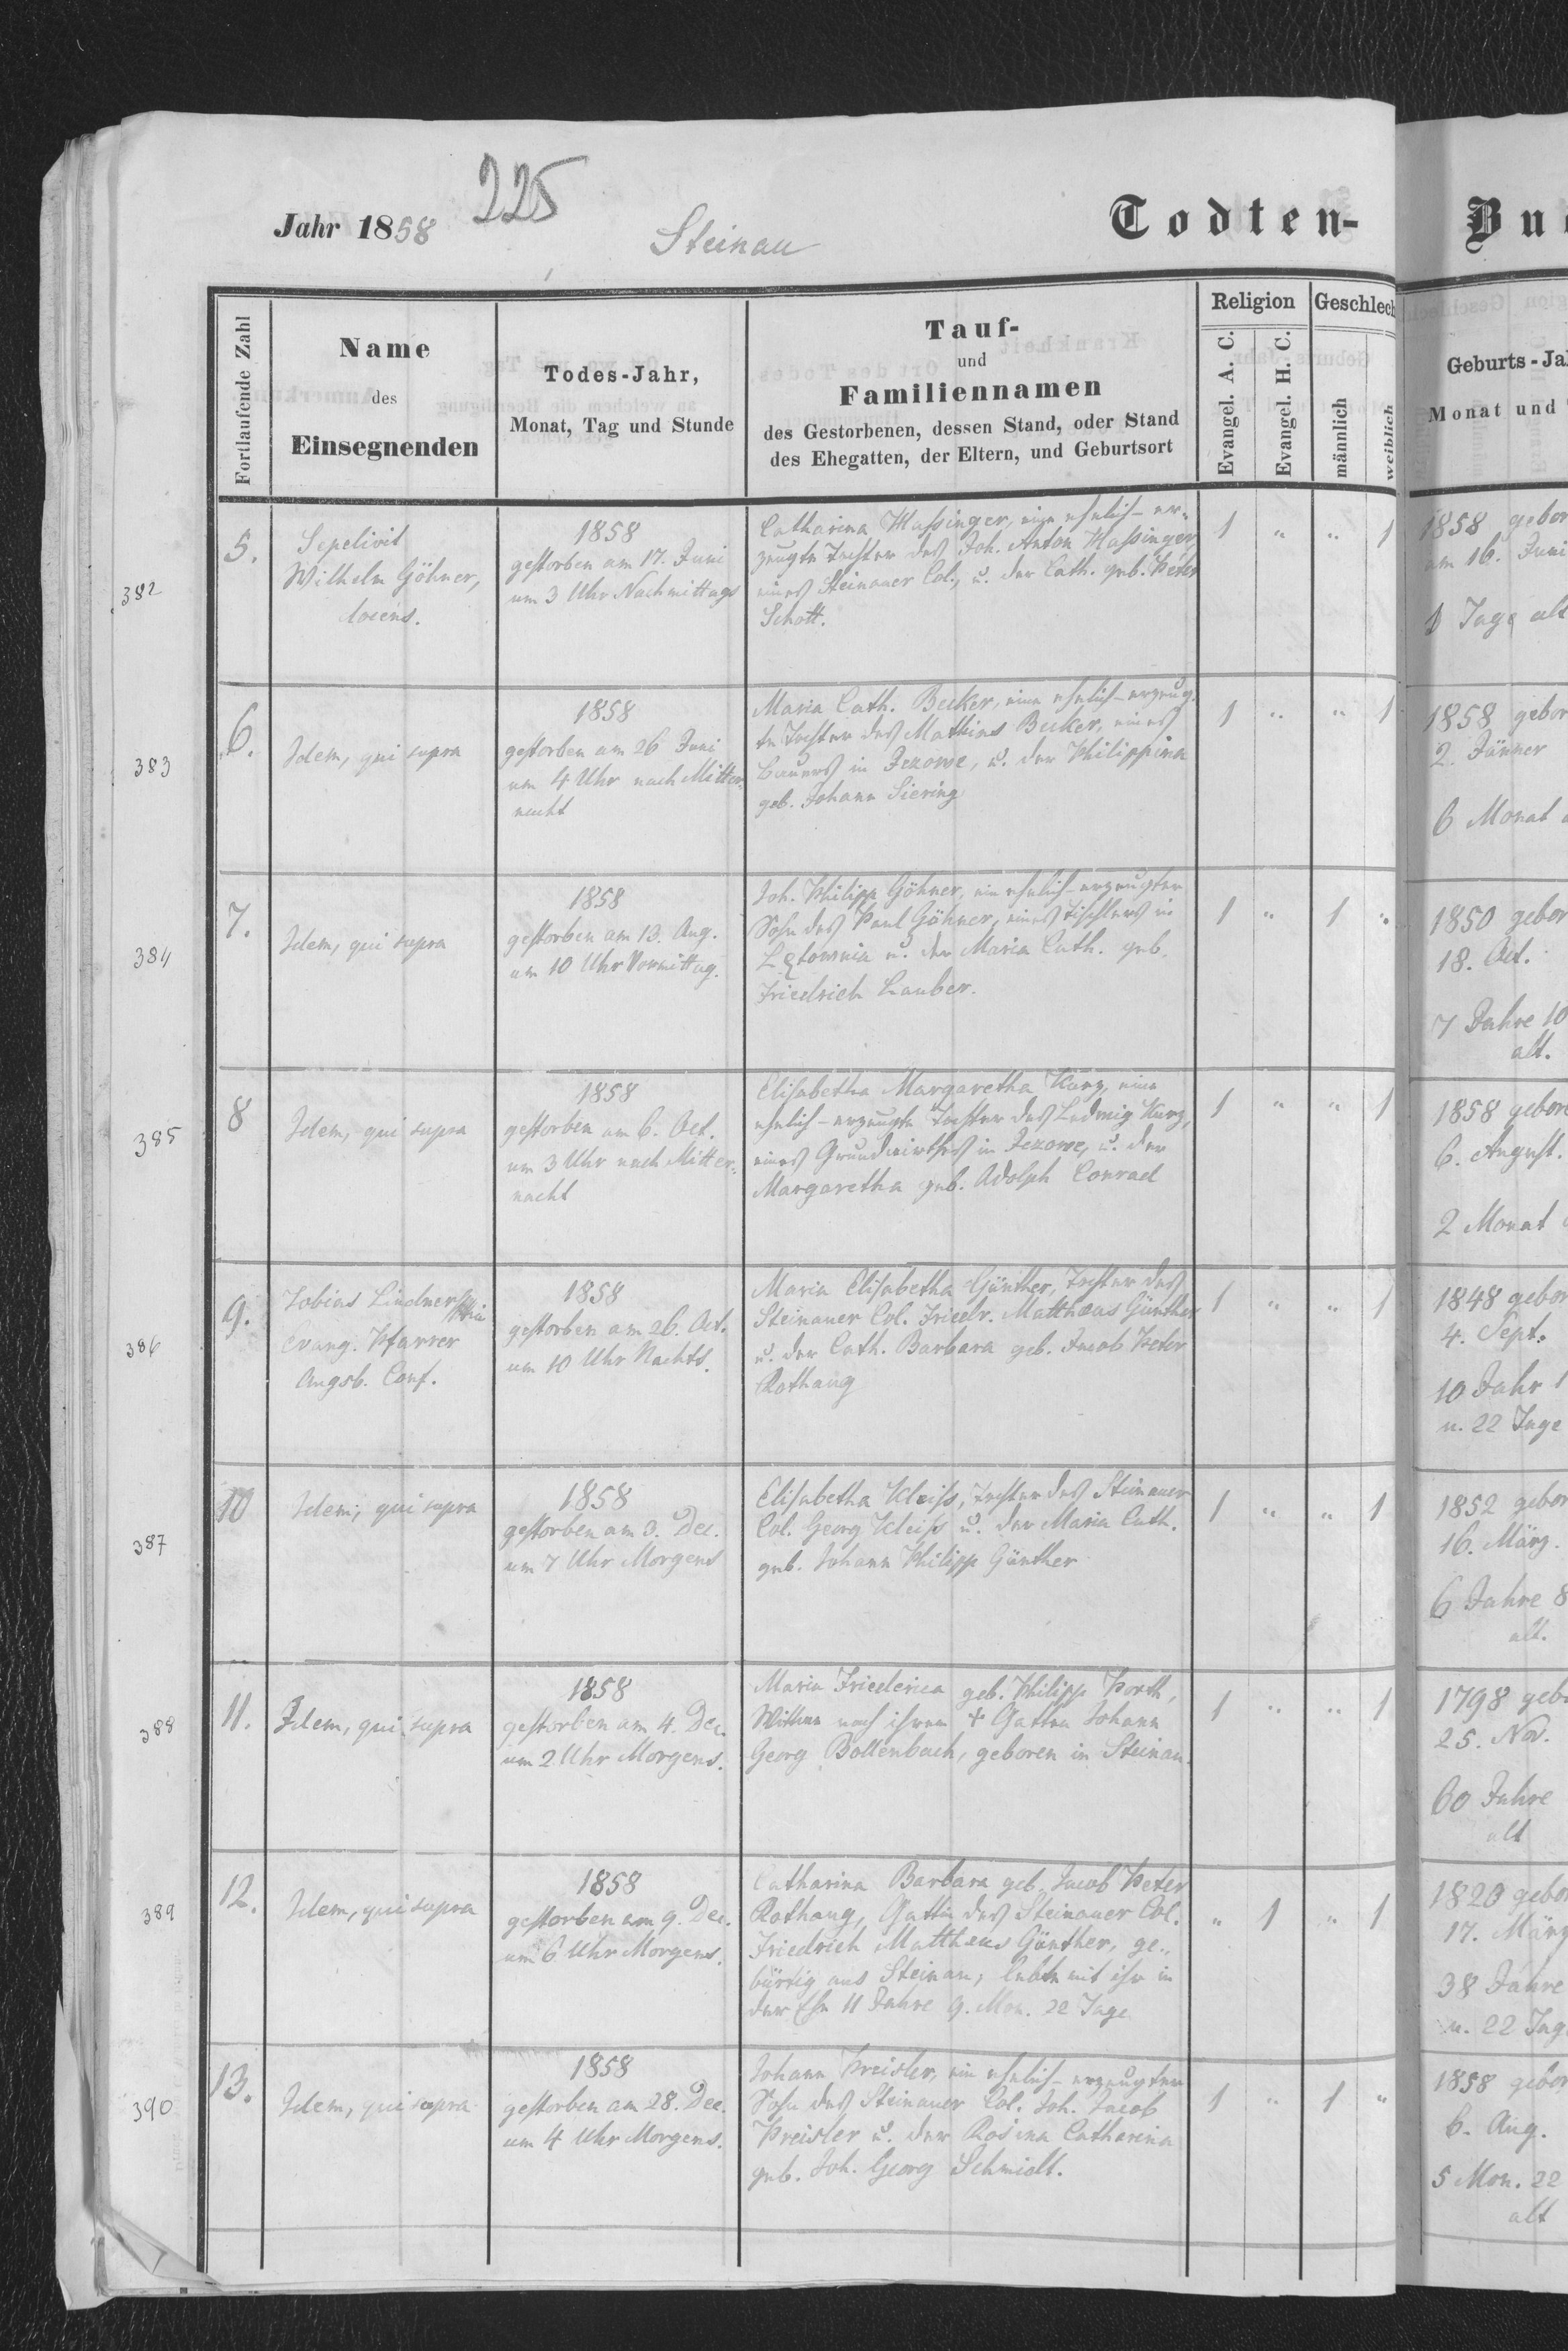 225
Jahr 1858
Steinau
Todten-
Bu
Fortlaufende Zahl
Name
des
Einsegnenden
Todes-Jahr,
Monat, Tag und Stunde
Tauf-
und
Familiennamen
des Gestorbenen, dessen Stand, oder Stand
des Ehegatten, der Eltern, und Geburtsort
Religion
Evangel. A. C.
Evangel. H. C.
Geschlech
männlich
weiblich
Geburts-Ja
Monat und
382
5.
Sepelivit
Wilhelm Göhner,
docens.
1858
gestorben am 17. Juni
um 3 Uhr Nachmittags
Catharina Massinger, eine ehelich-er-
zeugte Tochter des Joh. Anton Massinger
eines Steinauer Col., u. der Cath. geb. Peter
Schott.
1 " " 1
1858 gebor
am 16. Juni
1 Tage alt
383
6.
Idem, qui supra
1858
gestorben am 26 Juni
um 4 Uhr nach Mitter-
nacht
Maria Cath. Becker, eine ehelich-erzeug-
te Tochter des Mathias Becker, eines
Bauers in Jezowe, u. der Philippina
geb. Johann Siering
1 " " 1
1858 gebor
2. Jänner
6 Monat
384
7.
Idem, qui supra
1858
gestorben am 13. Aug.
um 10 Uhr Vormittag.
Joh. Philipp Göhner, ein ehelich-erzeugter
Sohn des Paul Göhner, eines Tischlers in
Lętownia u. der Maria Cath. geb.
Friedrich Lauber.
1 " 1 "
1850 gebor
18. Oct.
7 Jahre 10
alt.
385
8
Idem, qui supra
1858
gestorben am 6. Oct.
um 3 Uhr nach Mitter-
nacht
Elisabetha Margaretha Kurz, eine
ehelich-erzeugte Tochter des Ludwig Kurz,
eines Grundwirthes in Jezowe, u. der
Margaretha geb. Adolph Conrad
1 " " 1
1858 gebore
6. August.
2 Monat
386
9.
Tobias Lindner
Evang. Pfarrer
Augsb. Conf.
1858
gestorben am 26. Oct.
um 10 Uhr Nachts.
Maria Elisabetha Günther, Tochter des
Steinauer Col. Friedr. Matthæus Günther
u. der Cath. Barbara geb. Jacob Peter
Rothaug
1 " " 1
1848 gebor
4. Sept.
10 Jahr 1
u. 22 Tage
387
10
Idem, qui supra
1858
gestorben am 3. Dec.
um 7 Uhr Morgens
Elisabetha Kleiss, Tochter des Steinauer
Col. Georg Kleiss u. der Maria Cath.
geb. Johann Philipp Günther
1 " " 1
1852 gebor
16. März.
6 Jahre 8
alt.
388
11.
Idem, qui supra
1858
gestorben am 4. Dec.
um 2 Uhr Morgens.
Maria Friederica geb. Philipp Porth,
Wittwe nach ihrem † Gatten Johann
Georg Bollenbach, geboren in Steinau.
1 " " 1
1798 gebo
25. Nov.
60 Jahre
alt
389
12.
Idem, qui supra
1858
gestorben am 9. Dec.
um 6 Uhr Morgens.
Catharina Barbara geb. Jacob Peter
Rothaug, Gattin des Steinauer Col.
Friedrich Matthæus Günther, ge-
bürtig aus Steinau, lebte mit ihr in
der Ehe 11 Jahre 9. Mon. 22 Tage
" 1 " 1
1820 gebor
17. März
38 Jahre
u. 22 Tag
390
13.
Idem, qui supra
1858
gestorben am 28. Dec.
um 4 Uhr Morgens.
Johann Preisler, ein ehelich-erzeugter
Sohn des Steinauer Col. Joh. Jacob
Preisler u. der Rosina Catharina
geb. Joh. Georg Schmidt.
1 " 1 "
1858 gebor
6. Aug.
5 Mon. 22
alt